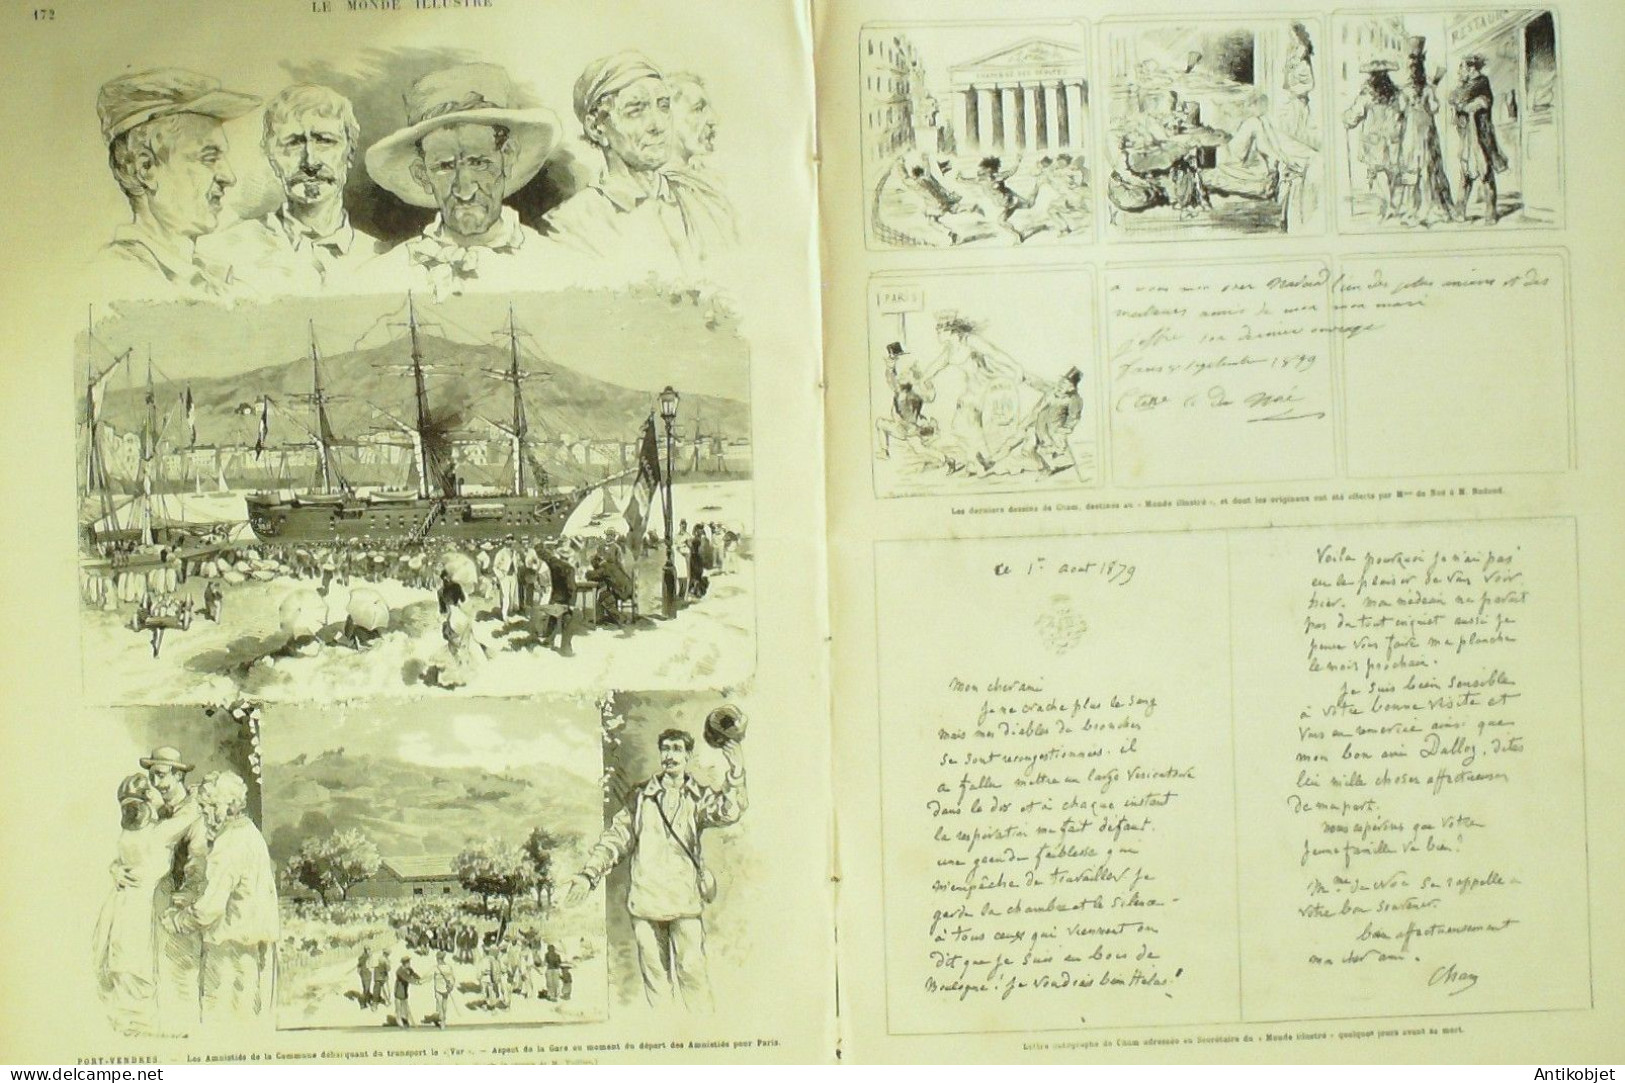 172
LE MONDE ILLUSTRÉ
CHAMBRE DES DÉPUTÉS
RESTAUR
PARIS
à vous mon cher Nadaud l'un des plus anciens et des
meilleurs amis de mon mari
j'offre son dernier ouvrage
Paris 8 septembre 1879
Ctesse A de Noé
Les derniers dessins de Cham, destinés au « Monde illustré », et dont les originaux ont été offerts par Mme de Noé à M. Nadaud.
ce 1er aout 1879
Mon cher ami
Je ne crache plus le sang
mais mes diables de bronches
se sont recongestionnées. il
a fallu mettre un large vesicatoire
dans le dos et à chaque instant
la respiration me fait défaut.
une grande faiblesse qui
m'empêche de travailler je
garde la chambre et le silence -
à tous ceux qui viennent on
dit que je suis au bois de
Boulogne ! je voudrais bien Hélas !
Voila pourquoi je n'ai pas
eu le plaisir de vous voir
hier. mon médecin ne parait
pas du tout inquiet aussi je
pense vous faire ma planche
le mois prochain.
Je suis bien sensible
à votre bonne visite et
vous en remercie ainsi que
mon bon ami Dalloz, dites
lui mille choses affectueuses
de ma part.
nous espérons que votre
jeune famille va bien ?
Mme de Noé se rappelle a
votre bon souvenir.
bien affectueusement
mon cher ami.
Cham
Lettre autographe de Cham adressée au Secrétaire du « Monde illustré » quelques jours avant sa mort.
PORT-VENDRES. — Les Amnistiés de la Commune débarquant du transport le « Var ». — Aspect de la Gare au moment du départ des Amnistiés pour Paris.
Antikobjet